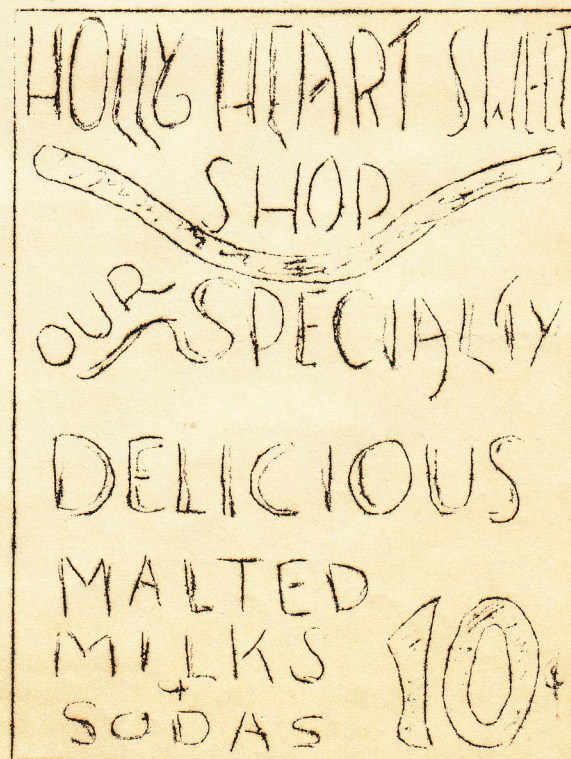 HOLLY HEART SWEET
SHOP
OUR SPECIALTY
DELICIOUS
MALTED
MILKS
+
SODAS 10¢